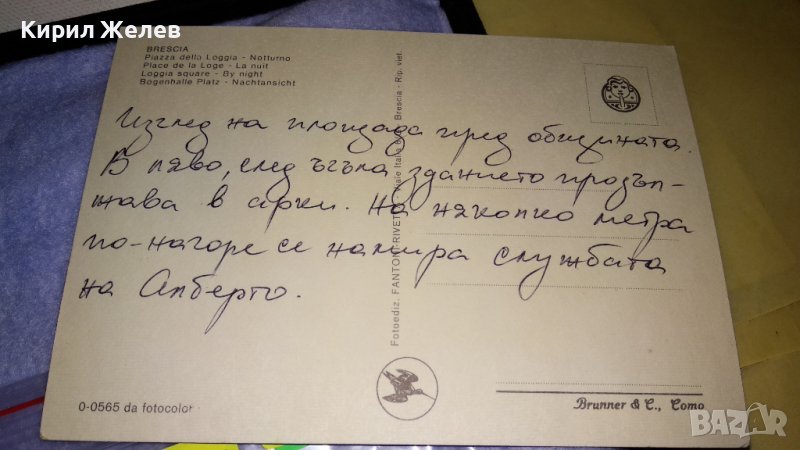 Кирил Желев
BRESCIA
Piazza della Loggia - Notturno
Place de la Loge - La nuit
Loggia square - By night
Bogenhalle Platz - Nachtansicht
Изглед на площада пред общината.
В ляво, след ъгъла зданието продъл-
жава в арки. На няколко метра
по-нагоре се намира службата
на Алберто.
Fotoediz. FANTONI-RIVETTA Viale Italia Brescia - Rip. viet.
0-0565 da fotocolor
Brunner & C., Como
BAZAR
bazar.bg